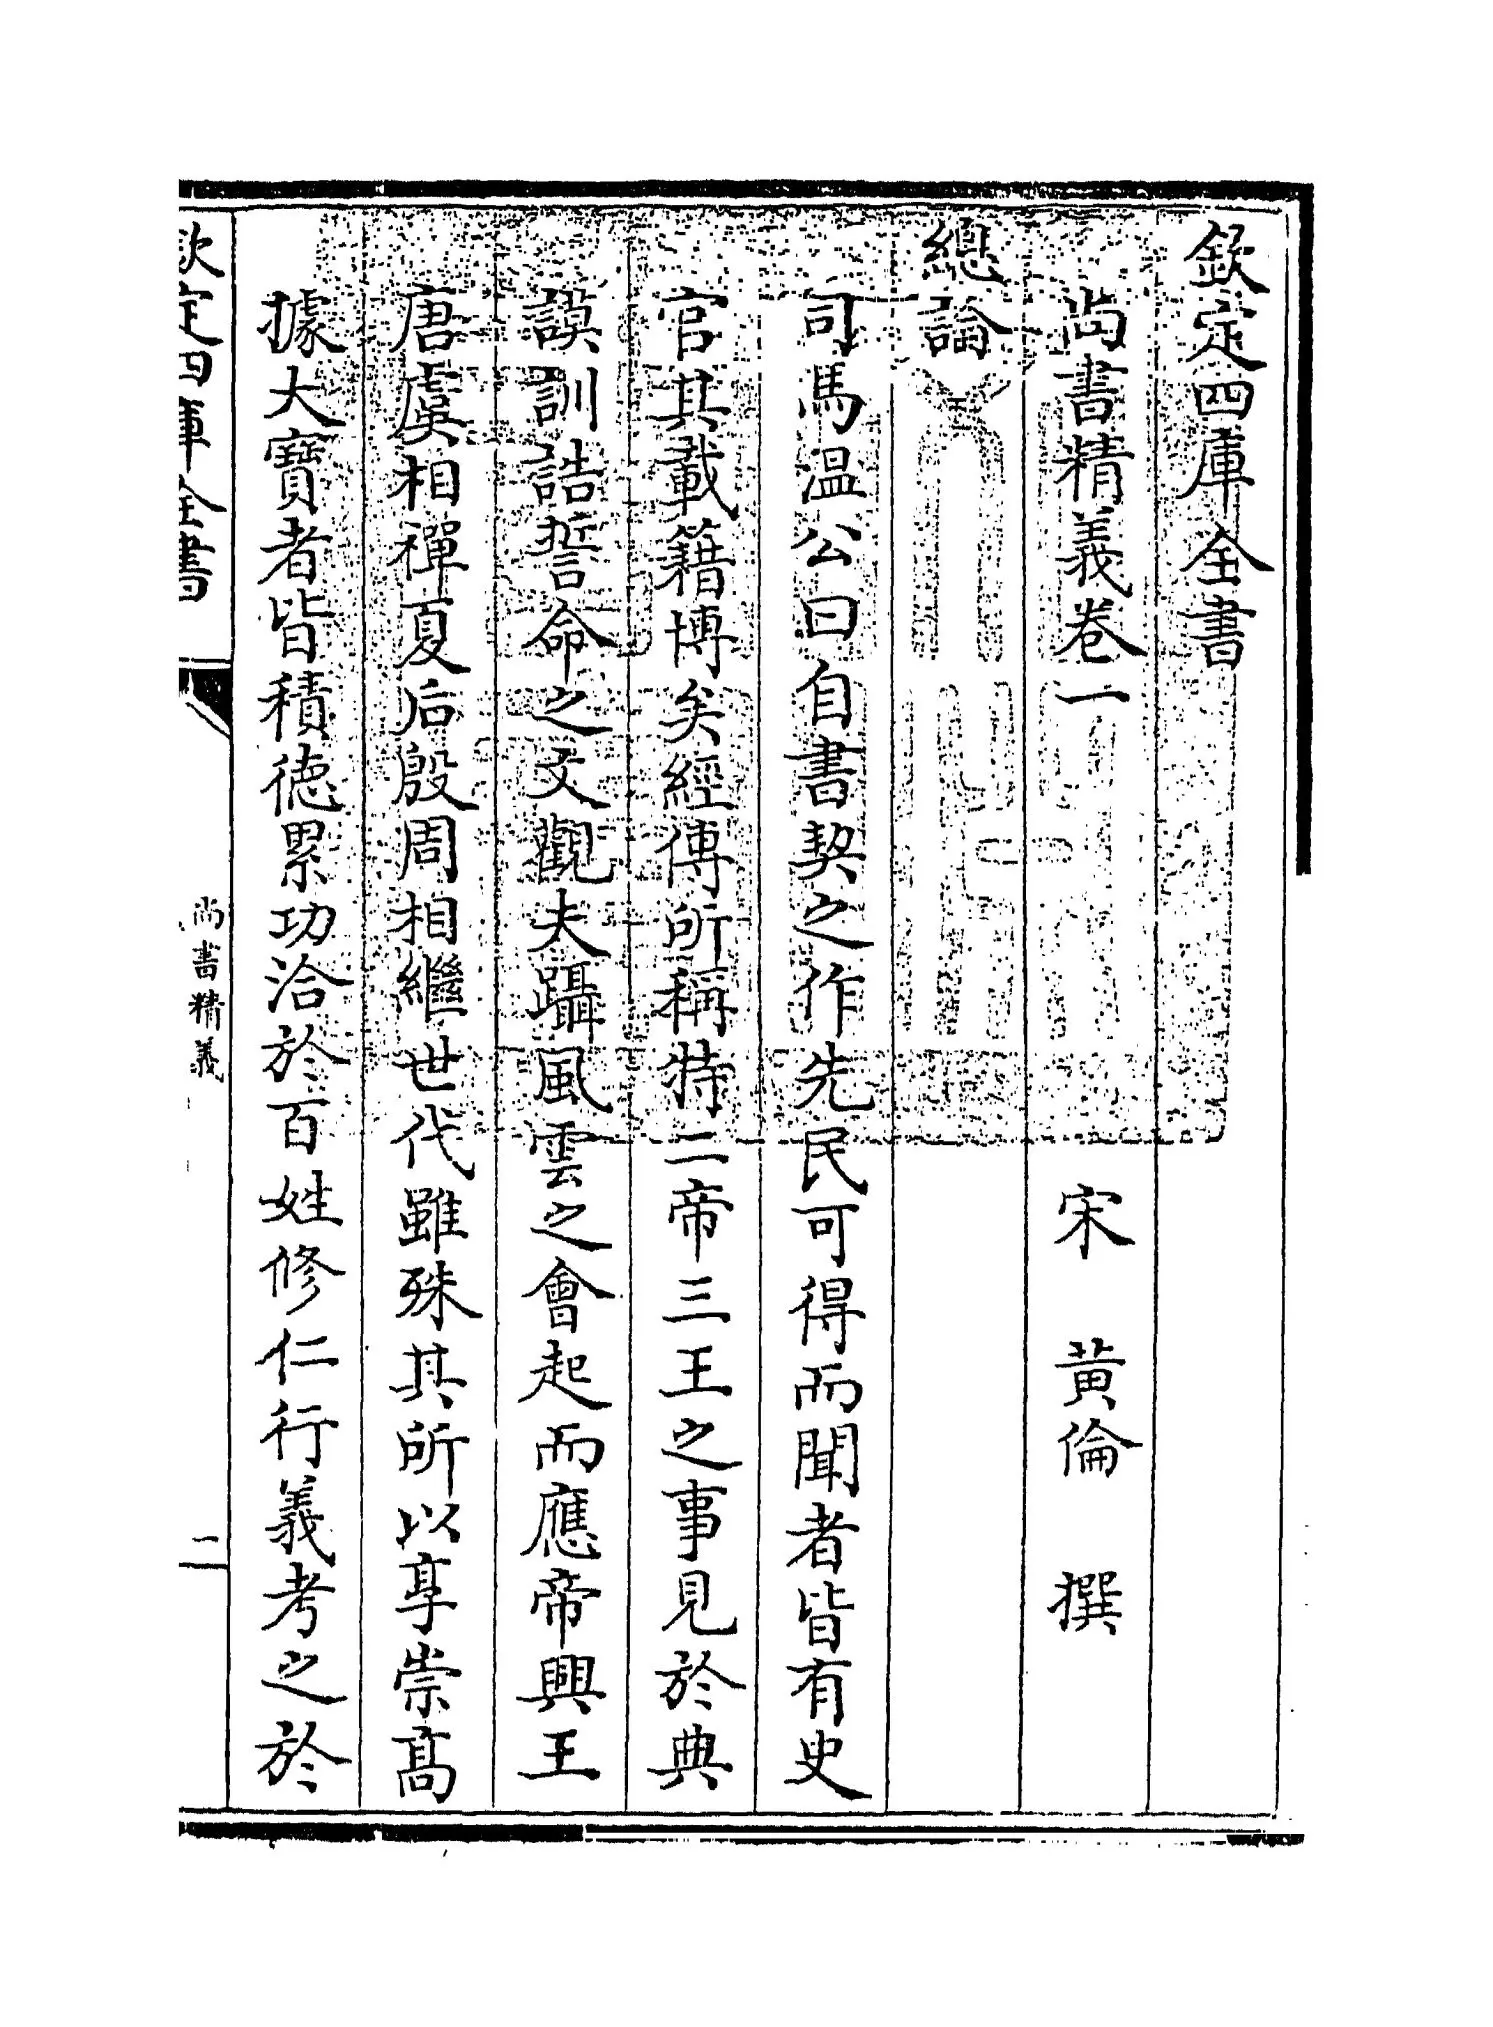 欽定四庫全書
尚書精義卷一
宋 黃倫 撰
總論
司馬温公曰自書契之作先民可得而聞者皆有史
官其載籍博矣經傳所稱特二帝三王之事見於典
謨訓誥誓命之文觀夫躡風雲之會起而應帝興王
唐虞相禪夏后殷周相繼世代雖殊其所以享崇高
據大寶者皆積德累功洽於百姓修仁行義考之於
欽定四庫全書
尚書精義
二